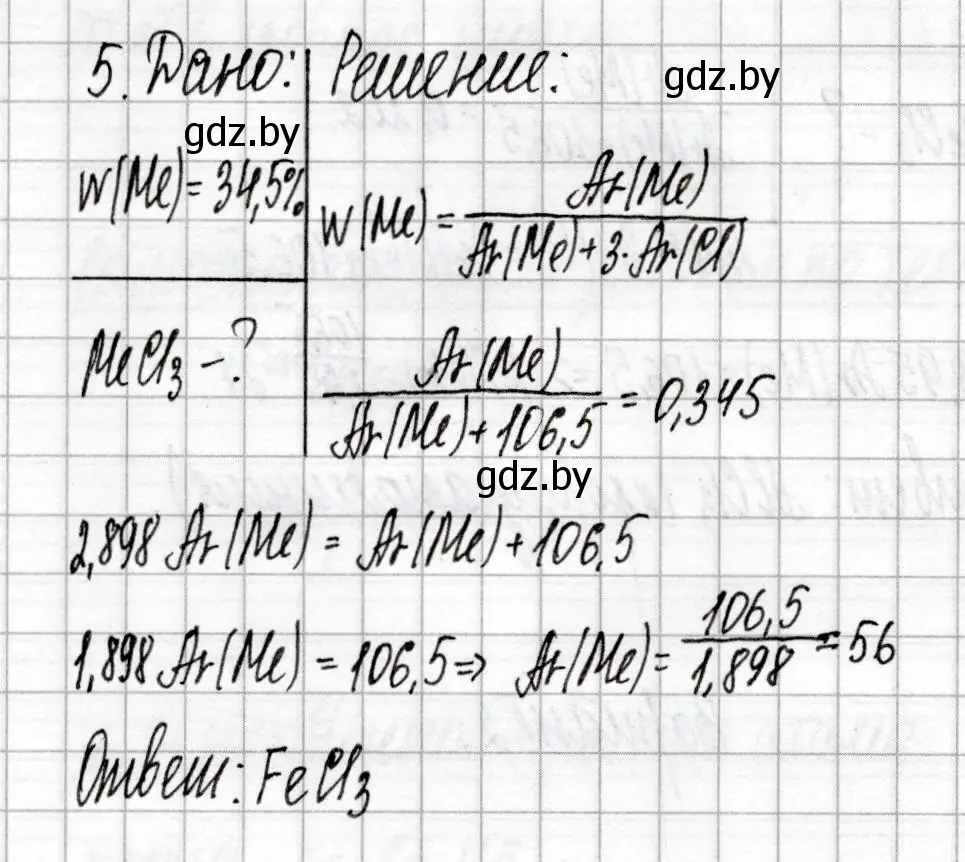 5. Дано: Решение:
gdz.by
gdz.by
w(Me) = 34,5%
w(Me) = Ar(Me) / Ar(Me) + 3·Ar(Cl)
MeCl₃ - ?
Ar(Me) / Ar(Me) + 106,5 = 0,345
gdz.by
2,898 Ar(Me) = Ar(Me) + 106,5
1,898 Ar(Me) = 106,5 => Ar(Me) = 106,5 / 1,898 = 56
Ответ: FeCl₃